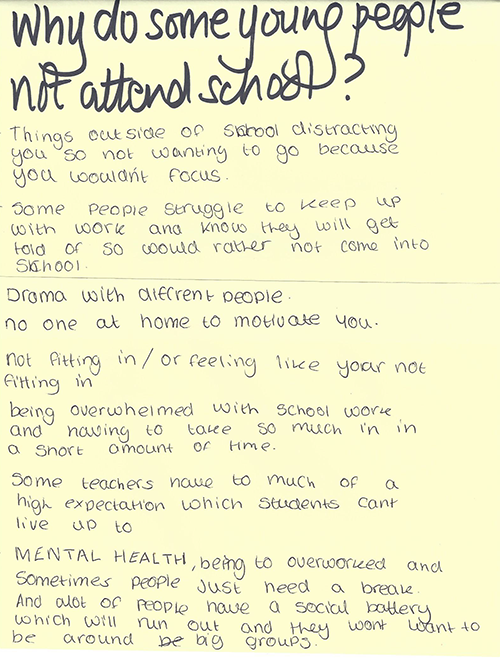 Why do some young people
not attend school?
Things outside of school distracting
you so not wanting to go because
you wouldn't focus.
Some people struggle to keep up
with work and know they will get
told of so would rather not come into
school.
Drama with different people.
no one at home to motivate you.
not fitting in / or feeling like your not
fitting in
being overwhelmed with school work
and having to take so much in in
a short amount of time.
Some teachers have to much of a
high expectation which students cant
live up to
MENTAL HEALTH, being to overworked and
Sometimes people Just need a break.
And alot of people have a social battery
which will run out and they wont want to
be around be big groups.